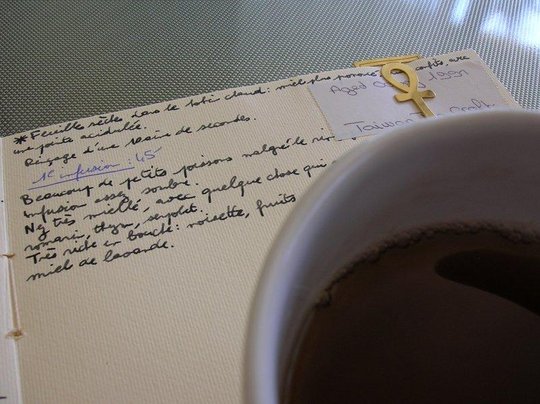 * Feuilles sèches dans le zhong chaud : miel plus prononcé, confits, avec
une pointe acidulée.
Rinçage d'une dizaine de secondes.
1e infusion : 45"
Beaucoup de petits poissons malgré le rin
Infusion assez sombre.
Nez très miellé, avec quelque chose qui
romarin, thym, serpolet.
Très riche en bouche : noisette, fruits
miel de lavande.
Aged 1991
Taiwan Tea Craft